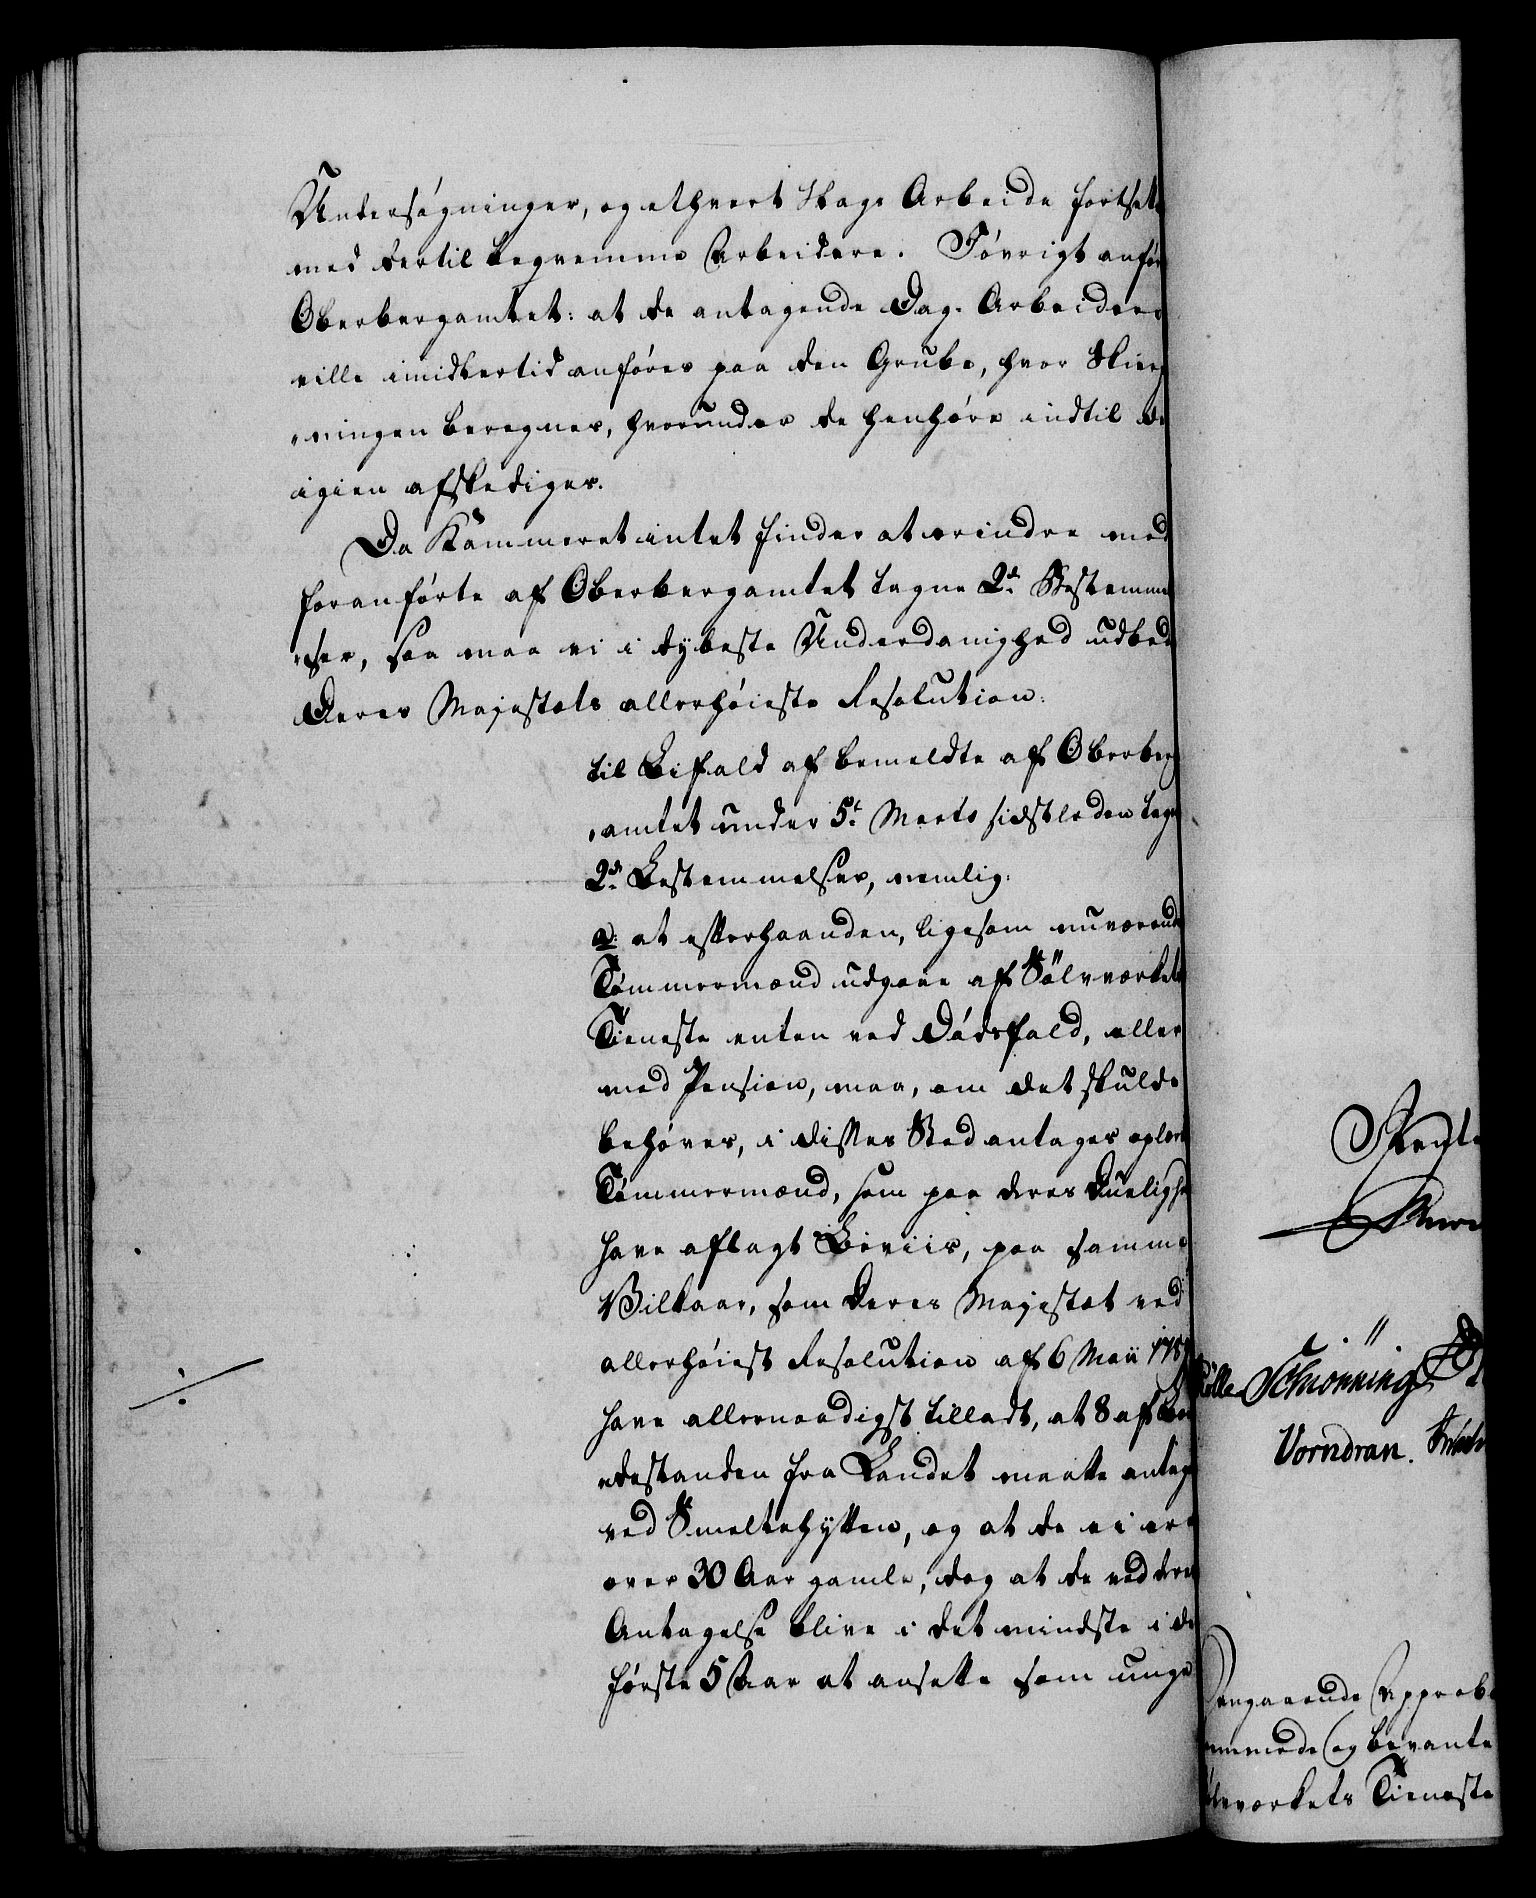 Undersøgninger, og ethvert Slags Arbeide fortsæt
med dertil beqvemme Arbeidere. Iøvrigt anfør
Oberbergamtet: at de antagende Dag-Arbeidere
ville imidlertid anføres paa den Grube, hvor Skier
„ningen beregnes, hvorunder de henhøre indtil de
igien afskediges.
Da Kammeret intet finder at erindre med
foranførte af Oberbergamtet tagne 2de Bestemmel
„ser, saa maa vi i dybeste Underdanighed udbede
Deres Majestæts allerhøieste Resolution:
til Bifald af bemeldte af Oberberg
„amtet under 5t Marts sidstleden tagne
2de Bestemmelser, nemlig:
a: at efterhaanden, ligesom nuværende
Tømmermænd udgaae af Sølvværkets
Tieneste enten ved Dødsfald, eller
med Pension, maa, om det skulde
behøves, i disses Sted antages oplærte
Tømmermænd, som paa deres Duelighed
have aflagt Beviis, paa samme
Vilkaar, som Deres Majestæt ved
allerhøiest Resolution af 6 Maii 178
have allernaadigst tilladt, at 8 af Bon
„destanden fra Landet maatte antages
ved Smeltehytten, og at de ei ere
over 30 Aar gamle, dog at de ved deres
Antagelse blive i det mindste i de
første 5 Aar at ansette som unge
Rente
Schiønning
Vorndran.
angaaende Approb
ommede og bevante
ølvværkets Tieneste